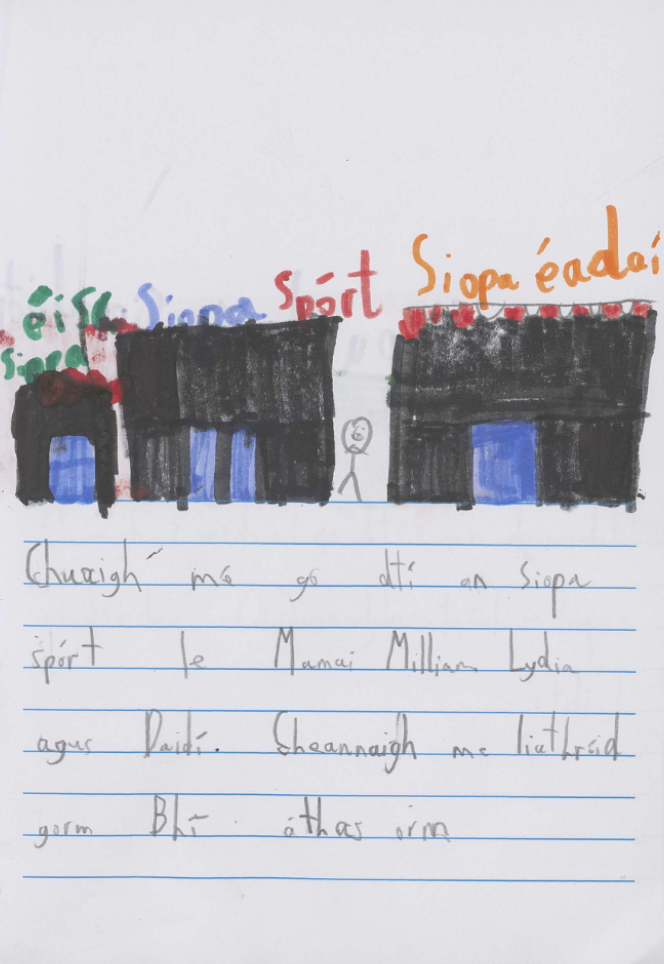 Siopa éadaí
Siopa spórt
éisc
siopa
Chuaigh mé go dtí an siopa
spórt le Mamai Milliam Lydia
agus Daidí. Cheannaigh me liathróid
gorm Bhí áthas orm